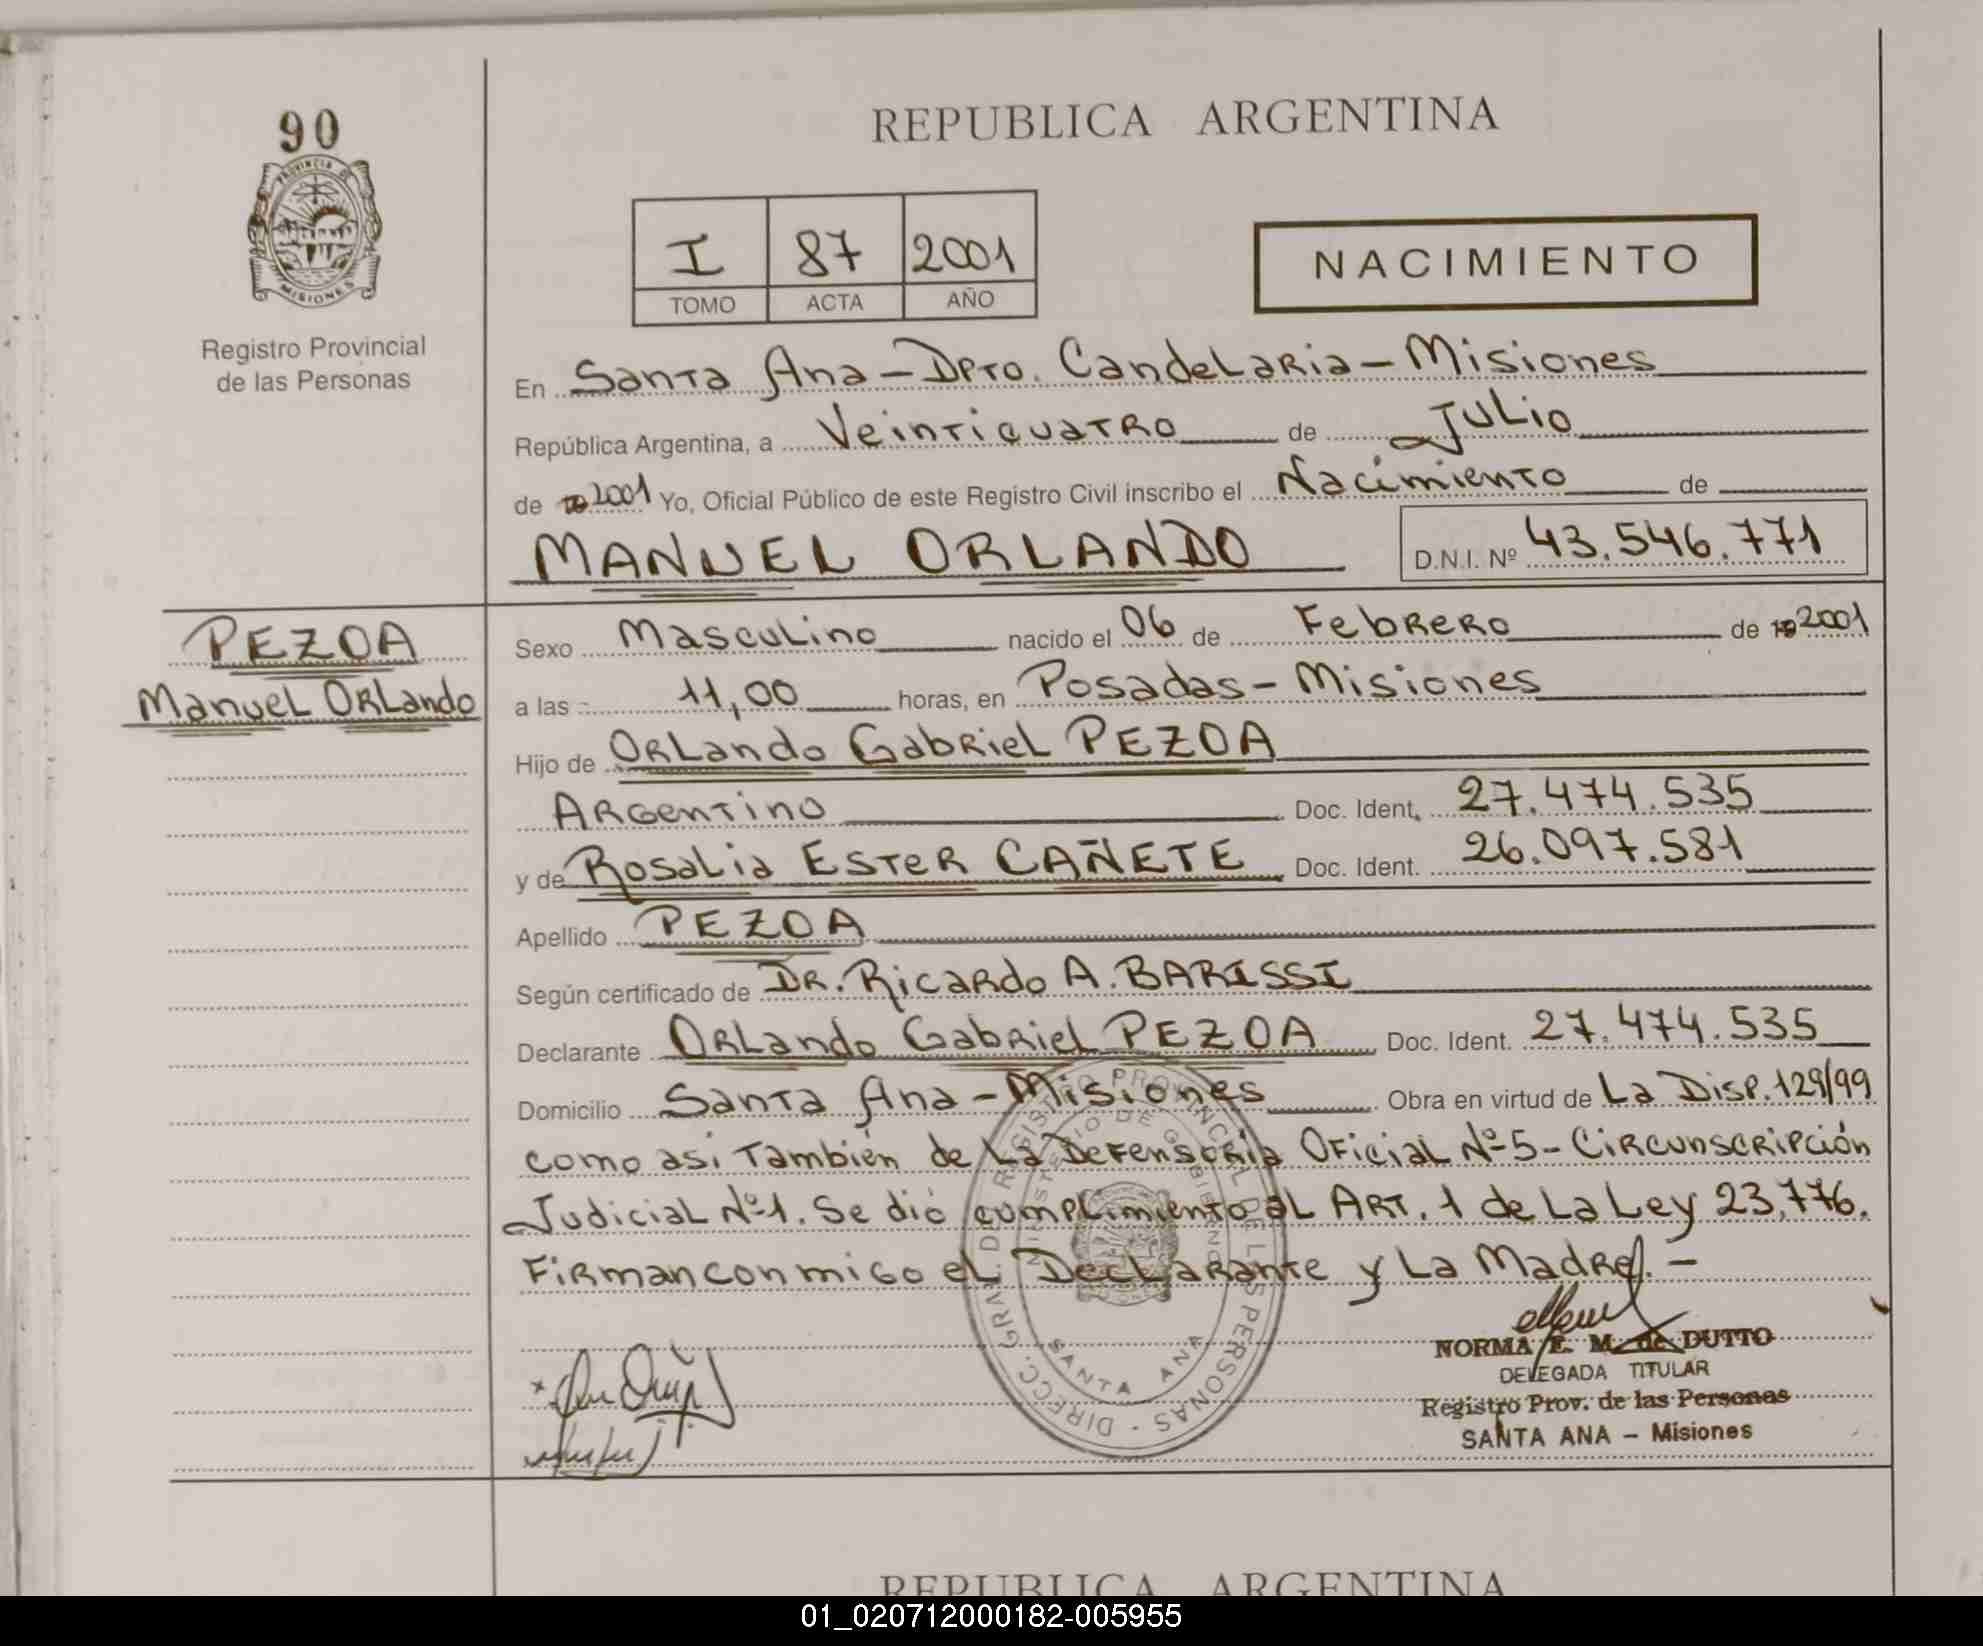 90
PROVINCIA DE
MISIONES
Registro Provincial
de las Personas
REPUBLICA ARGENTINA
I 87 2001
TOMO ACTA AÑO
NACIMIENTO
En Santa Ana - Dpto. Candelaria - Misiones
República Argentina, a Veinticuatro de Julio
de 2001 Yo, Oficial Público de este Registro Civil inscribo el Nacimiento de
MANUEL ORLANDO D.N.I. Nº 43.546.771
PEZOA
Manuel Orlando
Sexo Masculino nacido el 06 de Febrero de 2001
a las 11,00 horas, en Posadas - Misiones
Hijo de Orlando Gabriel PEZOA
Argentino Doc. Ident. 27.474.535
y de Rosalia Ester CAÑETE Doc. Ident. 26.097.581
Apellido PEZOA
Según certificado de Dr. Ricardo A. BARISSI
Declarante Orlando Gabriel PEZOA Doc. Ident. 27.474.535
Domicilio Santa Ana - Misiones Obra en virtud de La Disp. 129/99
como asi También de La Defensoria Oficial Nº 5 - Circunscripción
Judicial Nº 1. Se dió cumplimiento al Art. 1 de La Ley 23.776.
Firman conmigo el Declarante y La Madre. -
DIRECC. GRAL. DE REGISTRO PROVINCIAL DE LAS PERSONAS
MINISTERIO DE GOBIERNO
SANTA ANA
NORMA E. M. de DUTTO
DELEGADA TITULAR
Registro Prov. de las Personas
SANTA ANA - Misiones
REPUBLICA ARGENTINA
01_020712000182-005955